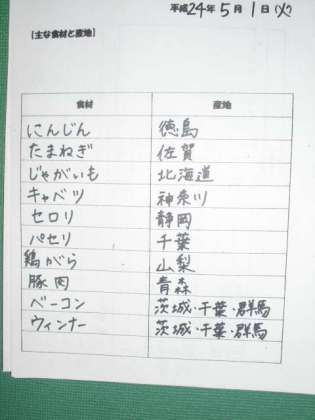 平成24年5月1日(火)
[主な食材と産地]
食材 産地
にんじん 徳島
たまねぎ 佐賀
じゃがいも 北海道
キャベツ 神奈川
セロリ 静岡
パセリ 千葉
鶏がら 山梨
豚肉 青森
ベーコン 茨城・千葉・群馬
ウィンナー 茨城・千葉・群馬